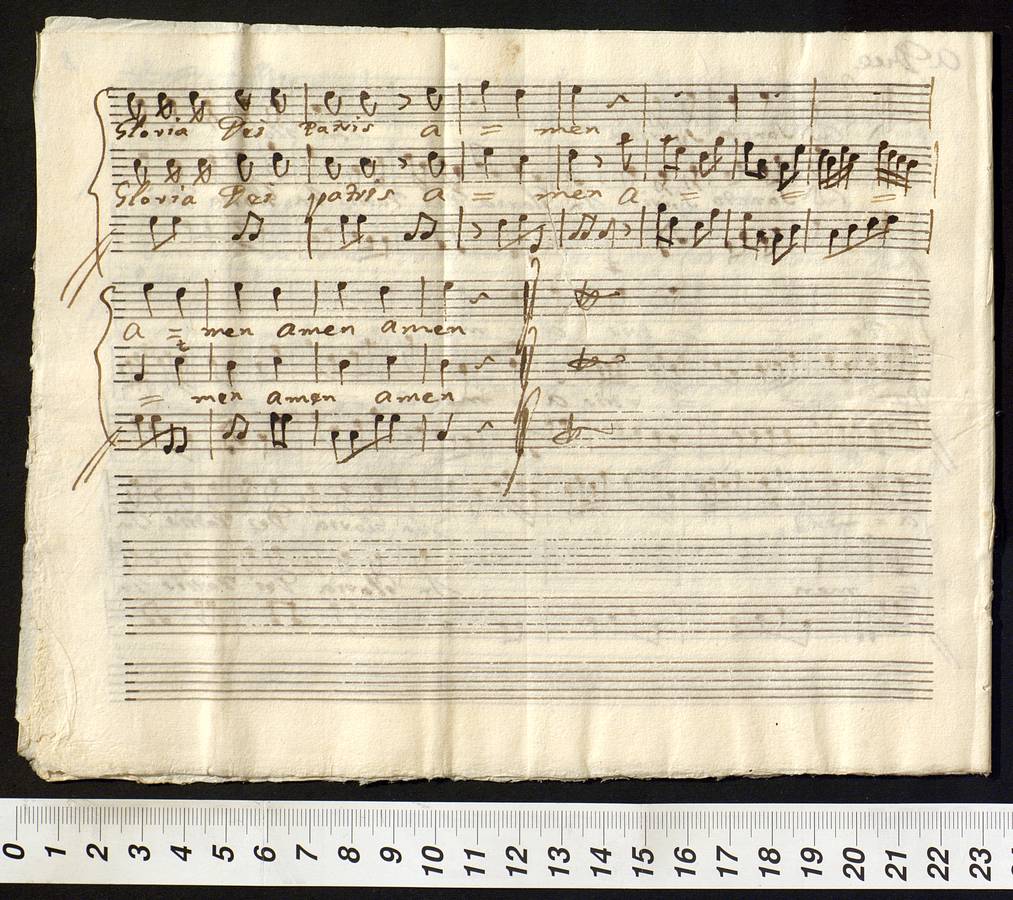 Gloria Dei Patris a = men
Gloria Dei patris a = men a = = =
a = men amen amen
= men amen amen
0 1 2 3 4 5 6 7 8 9 10 11 12 13 14 15 16 17 18 19 20 21 22 23